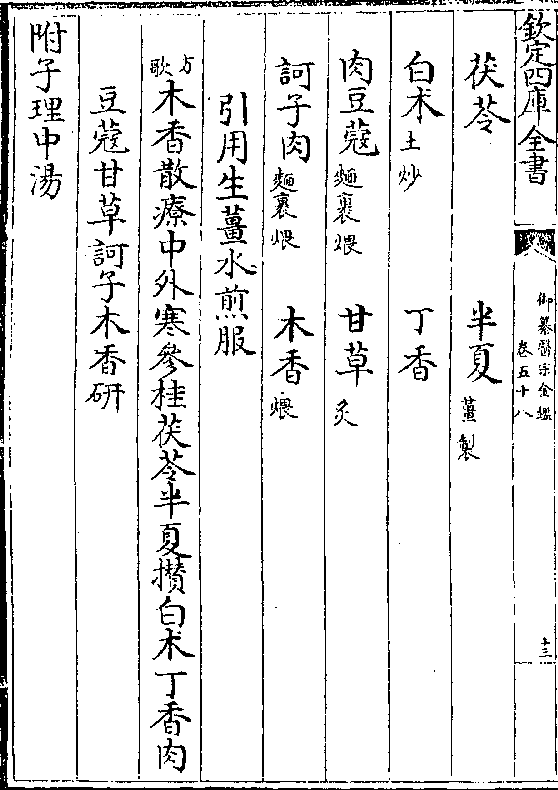 欽定四庫全書
御纂醫宗金鑑
卷五十八
十三
茯苓 半夏薑製
白术土炒 丁香
肉豆蔻麵裹煨 甘草炙
訶子肉麵裹煨 木香煨
引用生薑水煎服
方歌木香散療中外寒參桂茯苓半夏攢白术丁香肉
豆蔻甘草訶子木香研
附子理中湯